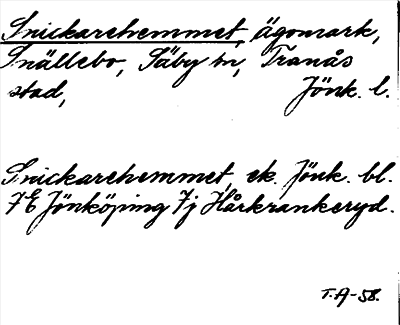 Snickarehemmet, ägomark,
Snällebo, Säby sn, Tranås
stad, Jönk. l.
Snickarehemmet, ek. Jönk. bl.
7E Jönköping 7j Hårkrankeryd.
T.A-58.